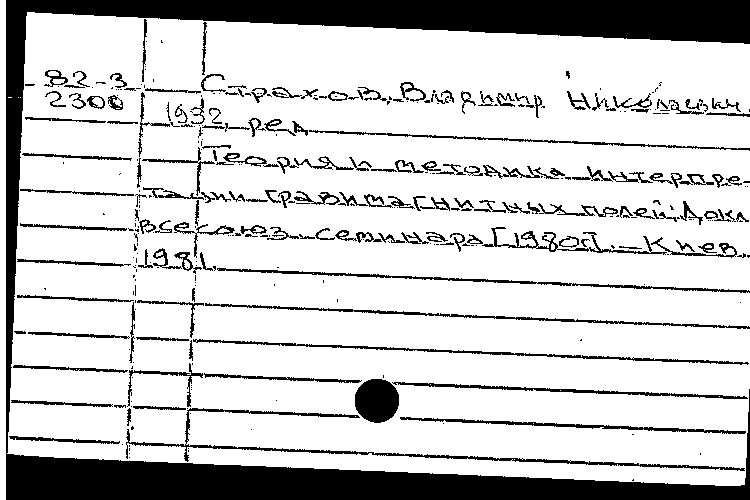 82-3
2300
Страхов, Владимир Николаевич.
1932, ред.
Теория и методика интерпре-
тации гравимагнитных полей: Докл.
всесоюз. семинара [1980г]. — Киев,
1981.